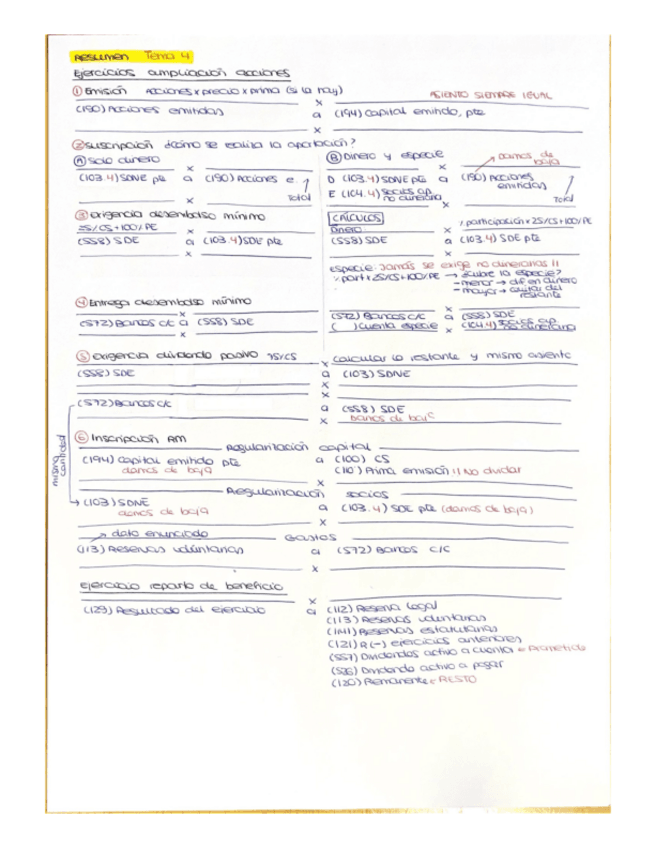 Resumen Tema 4
Ejercicios ampliación acciones
① Emisión Acciones x precio x prima (si la hay) ASIENTO SIEMPRE IGUAL
(190) Acciones emitidas a (194) capital emitido, pte
② Suscripción ¿cómo se realiza la aportación?
Ⓐ Solo dinero
(103.4) SDNE pte a (190) Acciones e.
Total
Ⓑ Dinero y especie Damos de baja
D (103.4) SDNE pte a (190) Acciones emitidas
E (104.4) Socios ap. no dineraria
Total
③ Exigencia desembolso mínimo
25% CS + 100% PE
(558) SDE a (103.4) SDE pte
CÁLCULOS
Dinero: % participación x 25% CS + 100% PE
(558) SDE a (103.4) SDE pte
Especie: Jamás se exige no dinerarias !!
% part x 25% CS + 100% PE → ¿cubre la especie?
- menor → dif en dinero
- mayor → quitar del restante
④ Entrega desembolso mínimo
(572) Bancos c/c a (558) SDE
(572) Bancos c/c a (558) SDE
( ) Cuenta especie (104.4) Socios ap. no dineraria
⑤ Exigencia dividendo pasivo 75% CS Calcular lo restante y mismo asiento
(558) SDE a (103) SDNE
(572) Bancos c/c a (558) SDE
Damos de baja
⑥ Inscripción RM
Regularización capital
(194) Capital emitido pte a (100) CS
damos de baja (110) Prima emisión !! No olvidar
Regularización socios
misma cantidad
(103) SDNE a (103.4) SDE pte (damos de baja)
damos de baja
dato enunciado Gastos
(113) Reservas voluntarias a (572) Bancos c/c
Ejercicio reparto de beneficio
(129) Resultado del ejercicio a (112) Reserva legal
(113) Reservas voluntarias
(1141) Reservas estatutarias
(121) R(-) ejercicios anteriores
(557) Dividendos activo a cuenta
(526) Dividendo activo a pagar
(120) Remanente RESTO